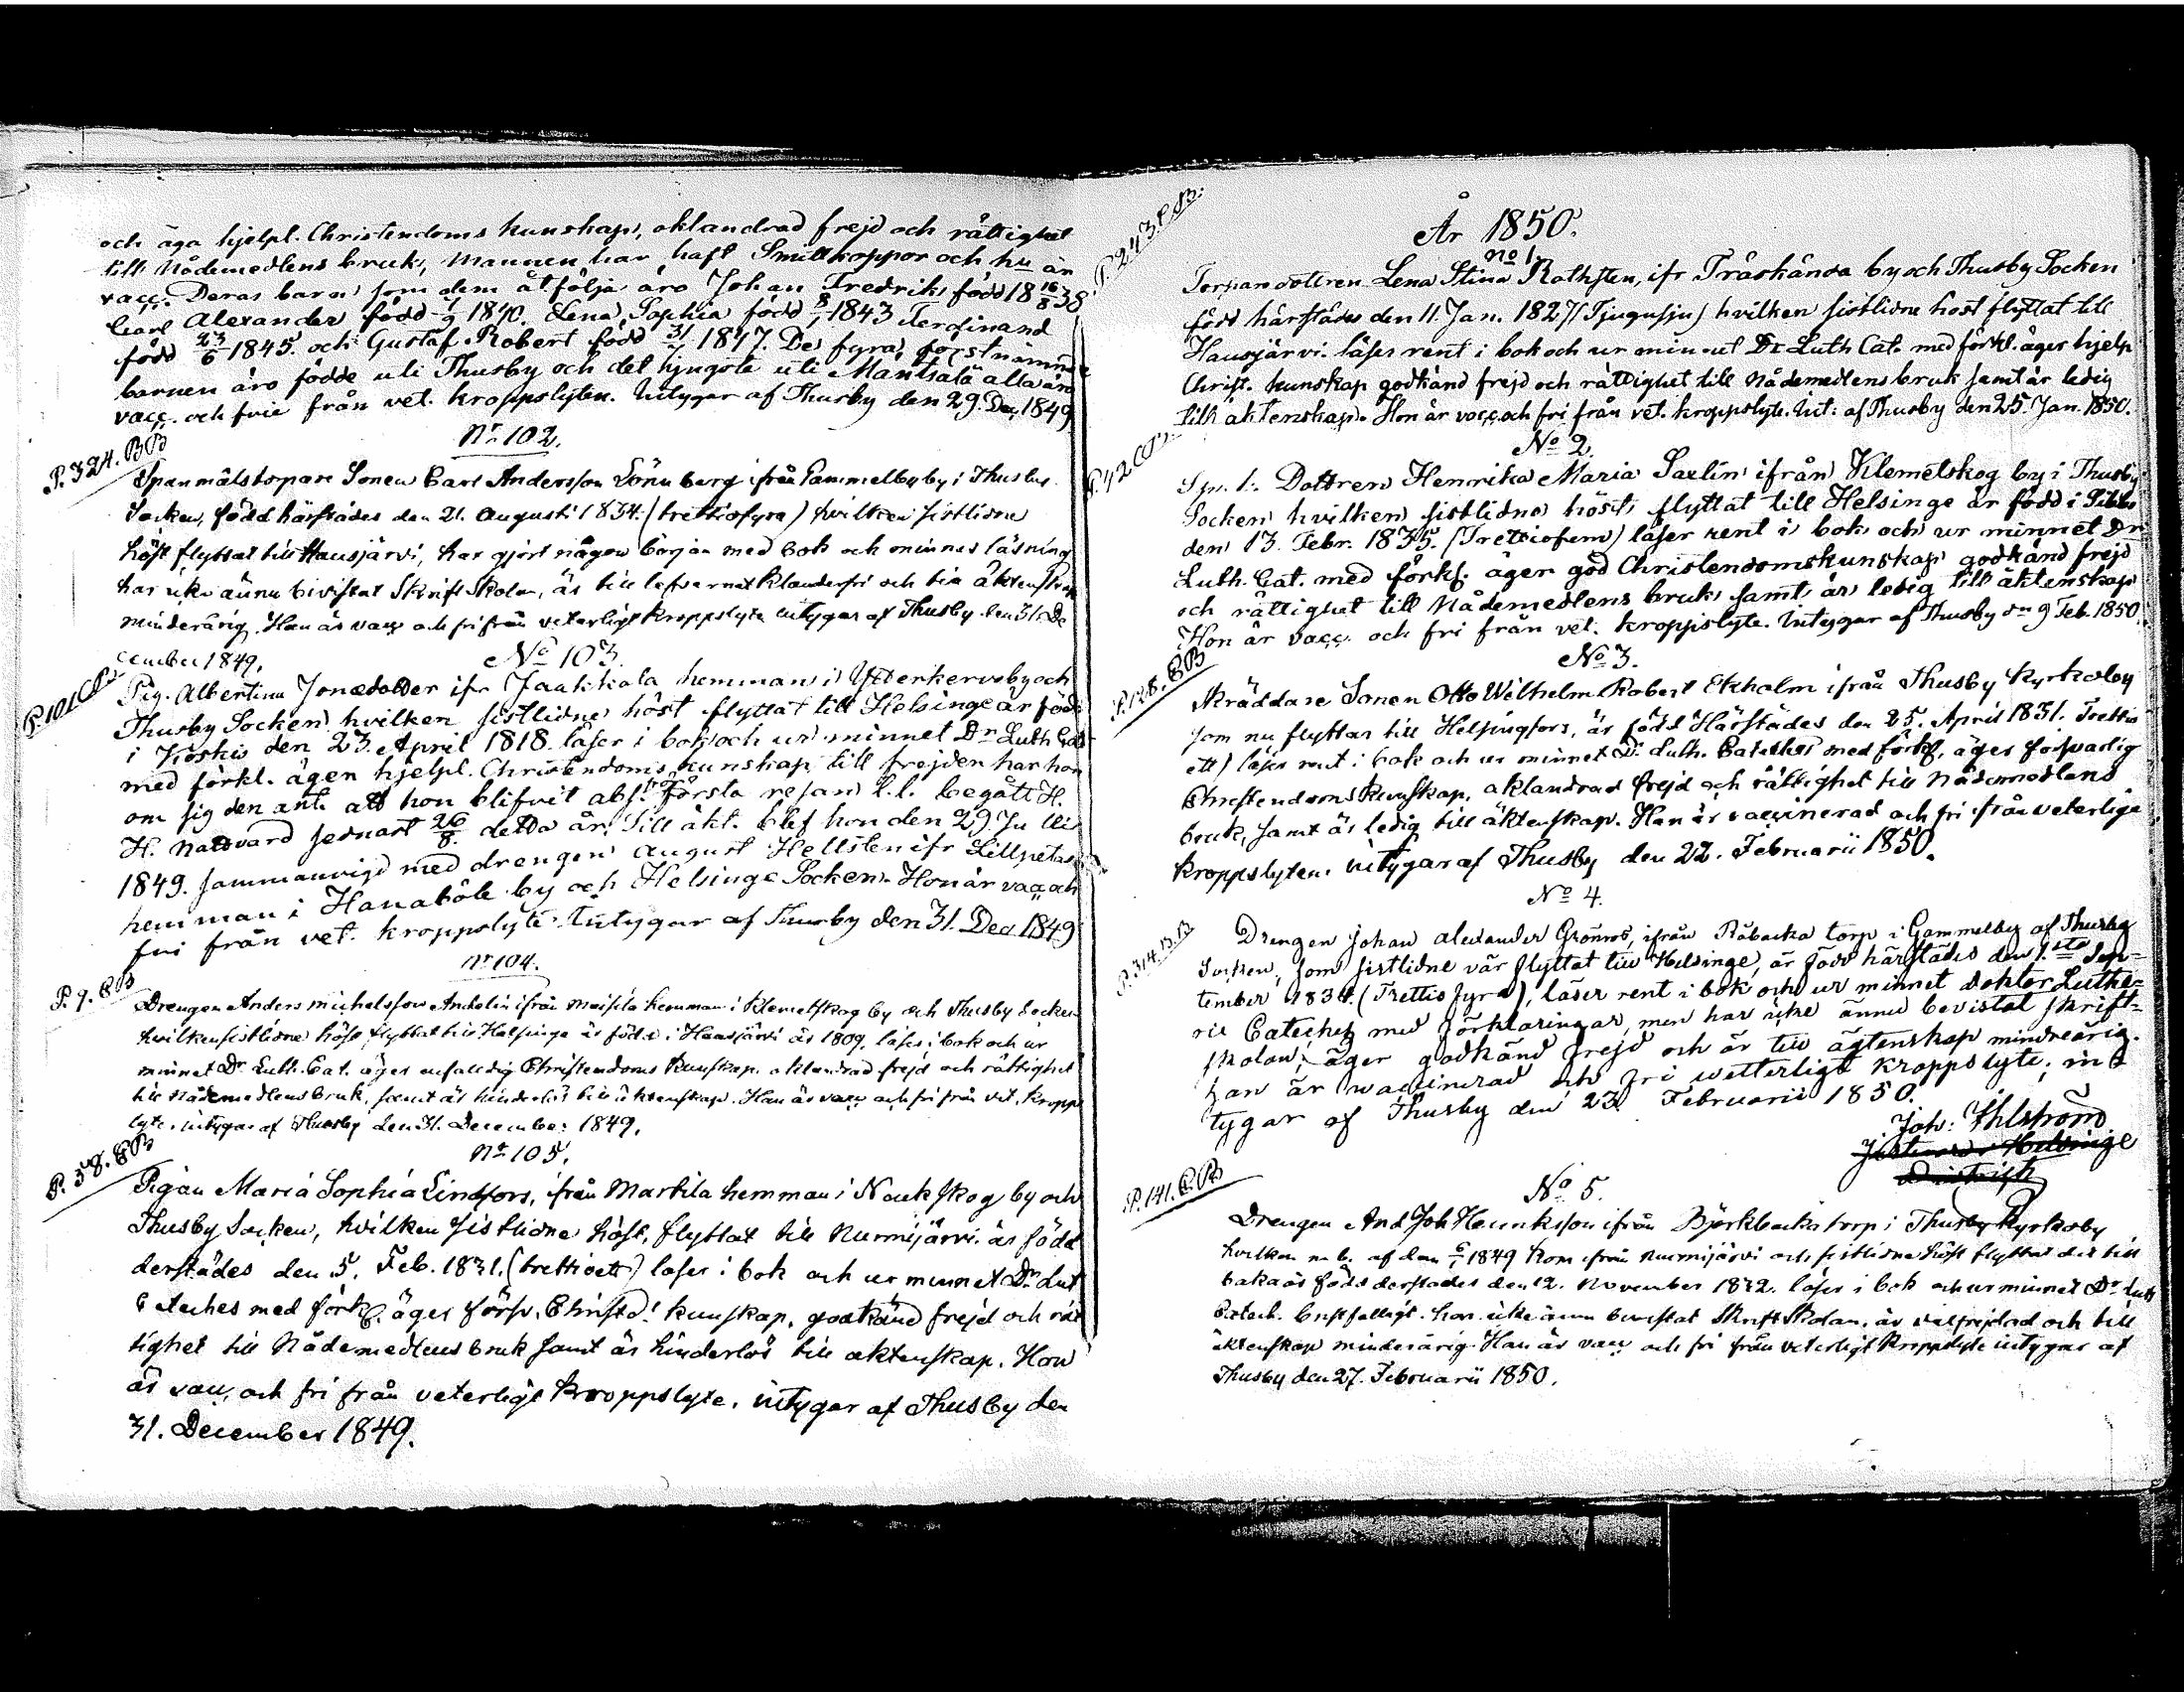 och äga hjelpl. Christendoms kunskap, oklandrad frejd och rättighet
till Nådemedlens bruk, mannen har haft Smittkoppor och hu är
vacc. Deras barn som dem åtfölja äro Johan Fredrik född 18 16/8 38
Carl Alexander född 1/9 1840. Lena Sophia född 8/1 1843 Ferdinand
född 23/6 1845. och Gustaf Robert född 31/7 1847. De fyra förstnämnde
barnen äro födde uti Thusby och det yngste uti Mäntsälä alla äro
vacc. och frie från vet. kroppslyten. Intygar af Thusby den 29. Dec 1849
Nr 102.
P. 324. BB
Spanmålstorpare Sonen Carl Andersson Lönnberg ifrån Gammelby by i Thusby
Socken, född härstädes den 21. Augusti 1834. (trettiofyra) hvilken sistlidne
höst flyttat till Hausjärvi, har gjort någon början med bok och minnes läsning
har icke ännu bivistat Skrift Skolan, är till lefvernet klanderfri och till äktenskap
minderårig. Han är vacc och fri från veterligt kroppslyte intygar af Thusby den 31. De
cember 1849.
No 103.
P. 101 CB
Pig. Albertina Jonædotter ifr Jaakkola hemman i Ytterkervoby och
Thusby Socken hvilken sistlidne höst flyttat till Helsinge är född
i Koskis den 23. April 1818. läser i bok och ur minnet Dr Luth Cat
med förkl. ägen hjelpl. Christendoms kunskap, till frejden har hon
om sig den ant. att hon blifvit abs. för första resan l.l. begått H.
H. Nattvard sednast 26/8 detta år. Till äkt. blef hon den 29. Julii
1849. sammanvigd med drengen August Hellsten ifr Lillpetas
hemman i Hanaböle by och Helsinge Socken. Hon är vacc och
fri från vet. kroppslyte Intygar af Thusby den 31. Dec 1849
Nr 104.
P. 9. CB
Drengen Anders Michelsson Andelin ifrån Meisila hemman i Klemetskog by och Thusby Socken
hvilken sistlidne höst flyttat till Helsinge är född i Hausjärvi år 1809, läser i bok och ur
minnet Dr Luth. Cat. äger enfaldig Christendoms kunskap. oklandrad frejd och rättighet
till Nådemedlens bruk, samt är hinderlös till äktenskap. Han är vacc och fri från vet. kropps
lyte, intygar af Thusby den 31. December 1849.
No 105.
P. 58. CB
Pigan Maria Sophia Lindfors, ifrån Martila hemman i Nackskog by och
Thusby Socken, hvilken sistlidne höst, flyttat till Nurmijärvi är född
derstädes den 5. Feb. 1831. (trettioett) läser i bok och ur minnet Dr Lut
Cateches med förkl. äger försv. Christd! kunskap, godkänd frejd och rät
tighet till Nådemedlens bruk samt är hinderlös till äktenskap. Hon
är vacc, och fri från veterligt kroppslyte, intygar af Thusby den
31. December 1849.
År 1850.
No 1.
P. 243. BB.
Torpardottren Lena Stina Rothsten, ifr Träskända by och Thusby Socken
född härstädes den 11. Jan. 1827 (Tjugusju) hvilken sistlidne höst flyttat till
Hausjärvi. läser rent i bok och ur minnet Dr Luth Cat. med förkl. äger hjelp
Christ. kunskap godkänd frejd och rättighet till Nådemedlens bruk samt är ledig
till äktenskap. Hon är vacc och fri från vet. kroppslyte. Int. af Thusby den 25. Jan. 1850.
No 2.
P. 42 CB
Dottren Henrika Maria Saxlin ifrån Klemetskog by i Thusby
Socken hvilken sistlidne höst, flyttat till Helsinge är född i Sibbo
den 13. Febr. 1835. (Trettiofem) läser rent i bok och ur minnet Dr
Luth. Cat. med förkl. äger god Christendomskunskap godkänd frejd
och rättighet till Nådemedlens bruk samt är ledig till äktenskap
Hon är vacc. och fri från vet. kroppslyte. Intygar af Thusby dn 9 Feb. 1850.
No 3.
P. 128. CB
Skräddare Sonen Otto Wilhelm Robert Ekholm ifrån Thusby Kyrkoby
som nu flyttar till Helsingfors, är född Härstädes den 25. April 1831. Trettio
ett) läser rent i bok och ur minnet Dr Luth. Cateches med förkl, äger försvarlig
Christendoms kunskap, oklandrad frejd och rättighet till Nådemedlens
bruk, samt är ledig till äktenskap. Han är vaccinerad och fri ifrån veterlige
kroppslyten. intygar af Thusby den 22. Februarii 1850.
No 4.
P. 314. BB
Drengen Johan Alexander Grönros, ifrån Råbacka torp i Gammelby af Thusby
Socken, som sistlidne vår flyttat till Helsinge, är född härstädes den 1.sta Sep=
tember 1834. (Trettio fyra), läser rent i bok och ur minnet doktor Luthe=
rii Cateches med förklaringar, men har icke ännu bevistat skrift=
skolan; äger godkänd frejd och är till ägtenskap mindreårig.
han är waccinerad och fri wetterligt kroppslyte; in
tygar af Thusby den 23. Februarii 1850.
Joh: Ihlström
No 5.
P. 141. CB
Drengen And Joh Henriksson ifrån Björkbacka torp i Thusby Kyrkoby
hvilken m. b. af den 1849 kom ifrån Nurmijärvi och sistlidne höst flyttat dit till
baka är född derstädes den 12. November 1832. läser i bok och ur minnet Dr Luth
Catech. bristfälligt. har icke ännu bevistat Skrift Skolan, är välfrejdad och till
äktenskap minderårig. Han är vacc och fri från veterligt kroppslyte intygar af
Thusby den 27. Februarii 1850.